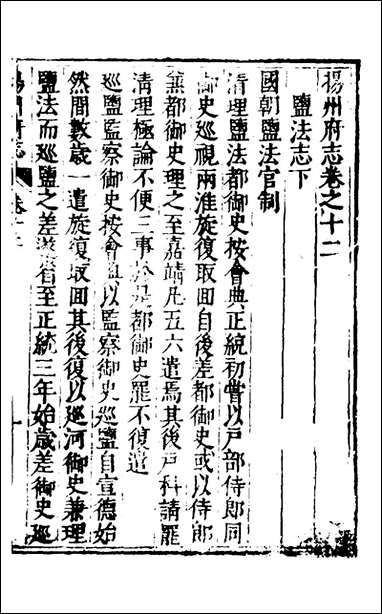 揚州府志卷之十二
鹽法志下
國朝鹽法官制
清理鹽法都御史按會典正統初嘗以戸部侍郎同
御史巡視兩淮旋復取囬自後差都御史或以侍郎
兼都御史理之至嘉靖凡五六遣焉其後戸科請罷
清理極論不便三事於是都御史罷不復遣
巡鹽監察御史按會典以監察御史巡鹽自宣德始
然間數歲一遣旋復取囬其後復以巡河御史兼理
鹽法而巡鹽之差遂省至正統三年始歲差御史巡
揚州府志 卷十二 一